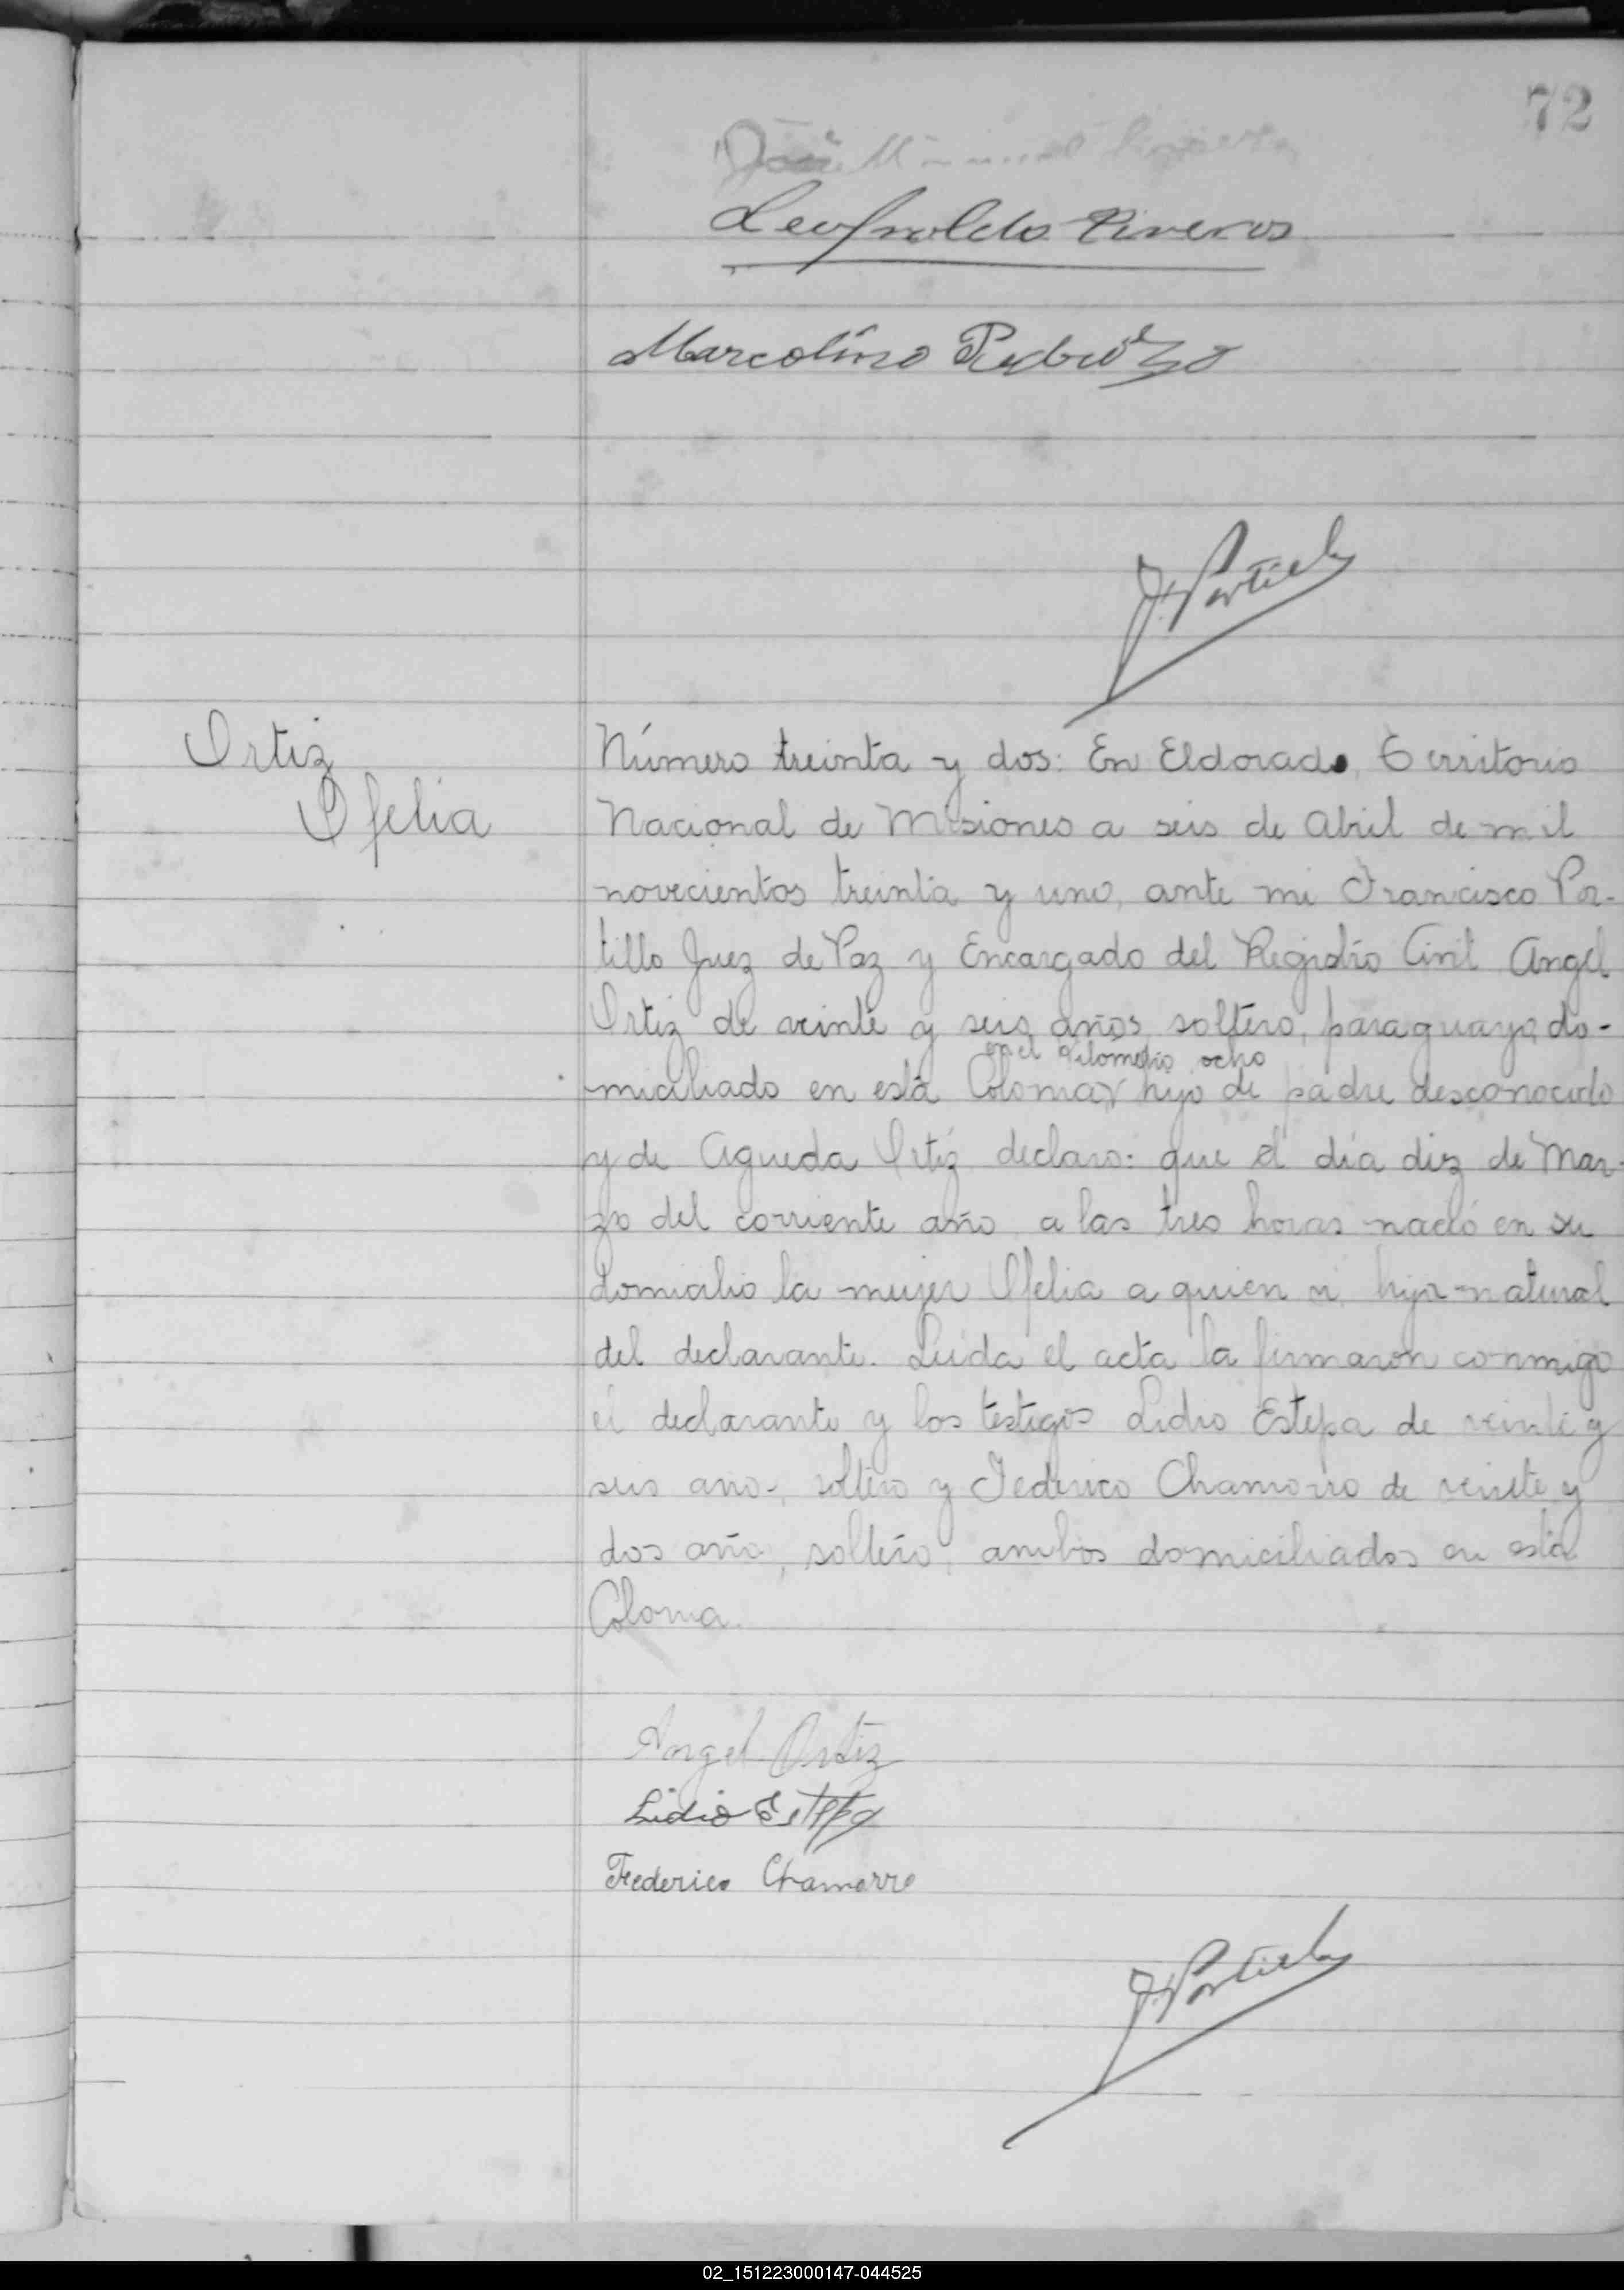 72
José Manuel
Leopoldo Riveros
Marcolino Pedrozo
F. Portillo
Ortiz
Ofelia
Número treinta y dos: En Eldorado, Territorio
Nacional de Misiones a seis de Abril de mil
novecientos treinta y uno, ante mi Francisco Por-
tillo Juez de Paz y Encargado del Registro Civil Angel
Ortiz de veinte y seis años, soltero, paraguayo, do-
en el kilómetro ocho
miciliado en esta Colonia hijo de padre desconocido
y de Agueda Ortiz declaro: que el día diez de Mar-
zo del corriente año a las tres horas nació en su
domicilio la mujer Ofelia a quien vi, hija natural
del declarante. Leída el acta la firmaron conmigo
el declarante y los testigos Lidio Estepa de veinte y
seis año, soltero y Federico Chamorro de veinte y
dos año, soltero, ambos domiciliados en esta
Colonia.
Angel Ortiz
Lidio Estepa
Federico Chamorro
F. Portillo
02_151223000147-044525